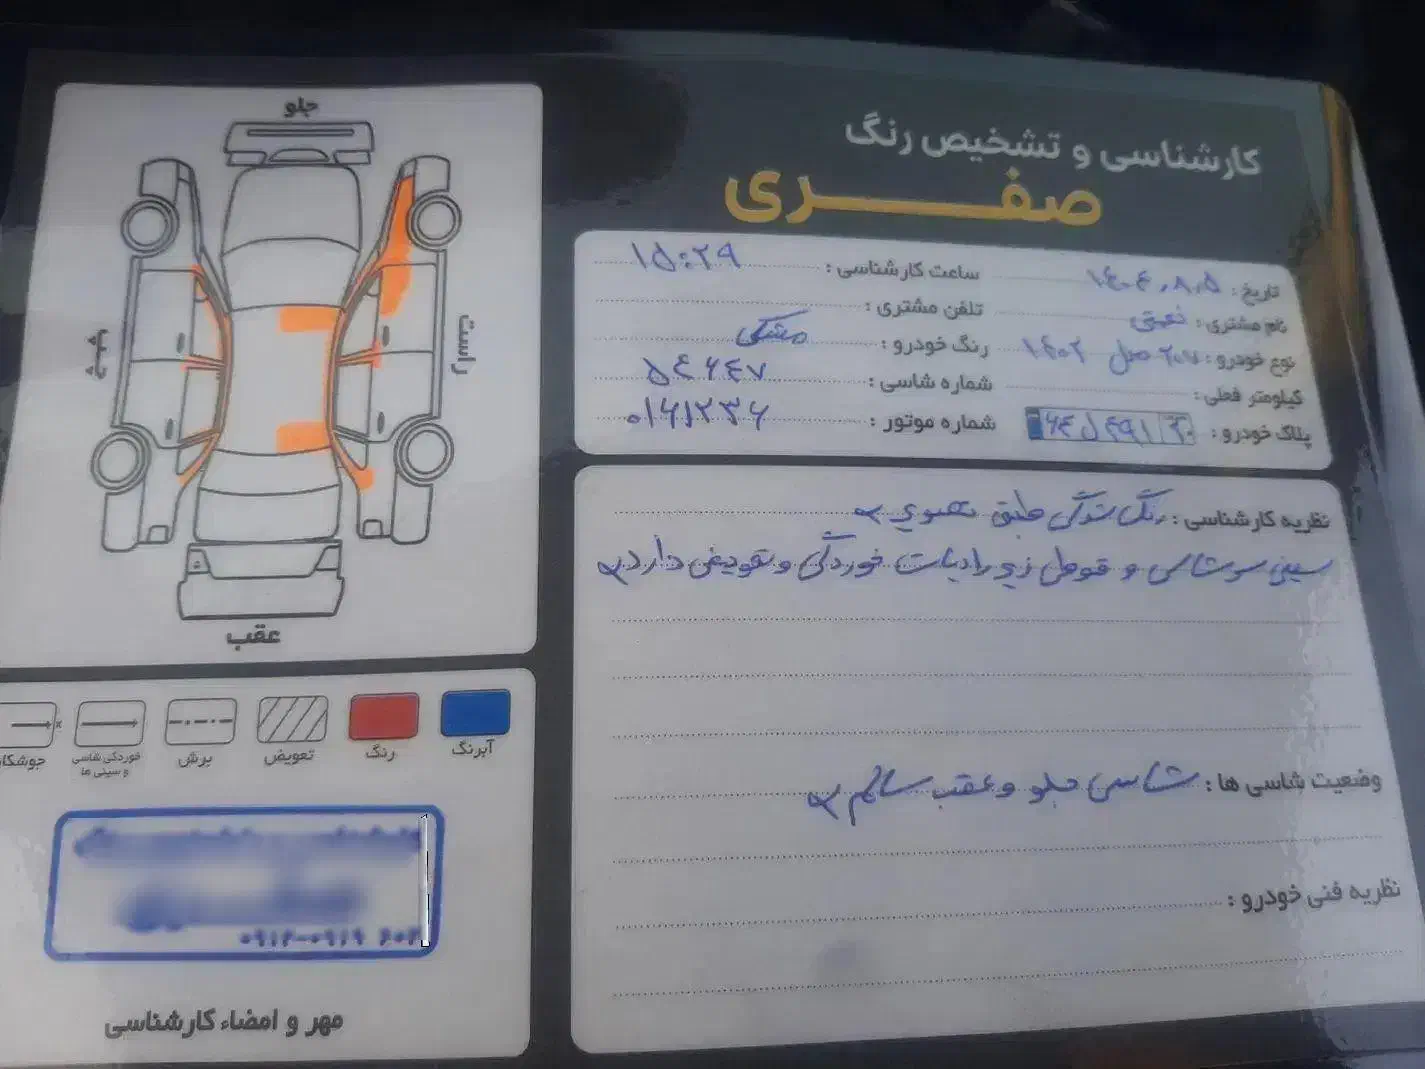 کارشناسی و تشخیص رنگ
صفری
تاریخ : ۱۴۰۴،۸،۵
ساعت کارشناسی : ۱۵:۲۹
نام مشتری : نعمتی
تلفن مشتری :
نوع خودرو : ۲۰۷ مدل ۱۴۰۲
رنگ خودرو : مشکی
کیلومتر فعلی :
شماره شاسی : ۵۴۶۴۷
پلاک خودرو :
شماره موتور : ۰۱۶۱۲۳۶
نظریه کارشناسی : رنگ شدگی طبق تصویر
سینی سرشاسی و قوطی زیر رادیات خوردگی و تعویض دارد
وضعیت شاسی ها : شاسی جلو و عقب سالم
نظریه فنی خودرو :
جلو
راست
چپ
عقب
آبرنگ
رنگ
تعویض
برش
خوردگی شاسی
و سینی ها
مهر و امضاء کارشناسی